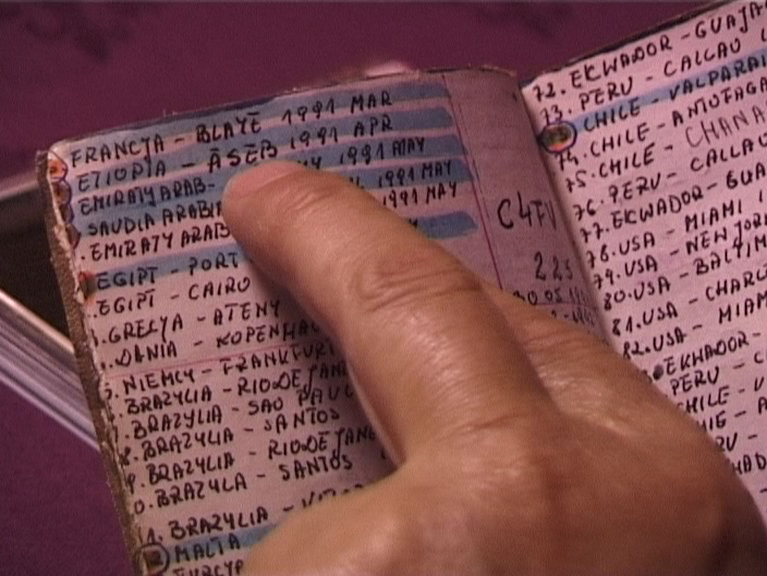 FRANCJA - BLAYE 1991 MAR
ETIOPIA - ASEB 1991 APR
EMIRATY ARAB- 1991 MAY
SAUDIA ARABI 1991 MAY
EMIRATY ARAB 1991 MAY
EGIPT - PORT
EGIPT - CAIRO
GRECJA - ATENY
DANIA - KOPENHAG
NIEMCY - FRANKFURT
BRAZYLIA - RIO DE JANE
BRAZYLIA - SAO PAUL
BRAZYLIA - SANTOS
BRAZYLIA - RIO DE JANE
BRAZYLA - SANTOS
BRAZYLIA -
MALTA
225
72. EKWADOR - GUAJA
73. PERU - CALLAU
CHILE - VALPARAI
CHILE - ANTOFAGA
75. CHILE - CHANA
76. PERU - CALLAU
77. EKWADOR - GUA
78. USA - MIAMI
79. USA - NEW JOR
80. USA - BALTIM
81. USA - CHARL
82. USA - MIAM
EKWADOR -
PERU - C